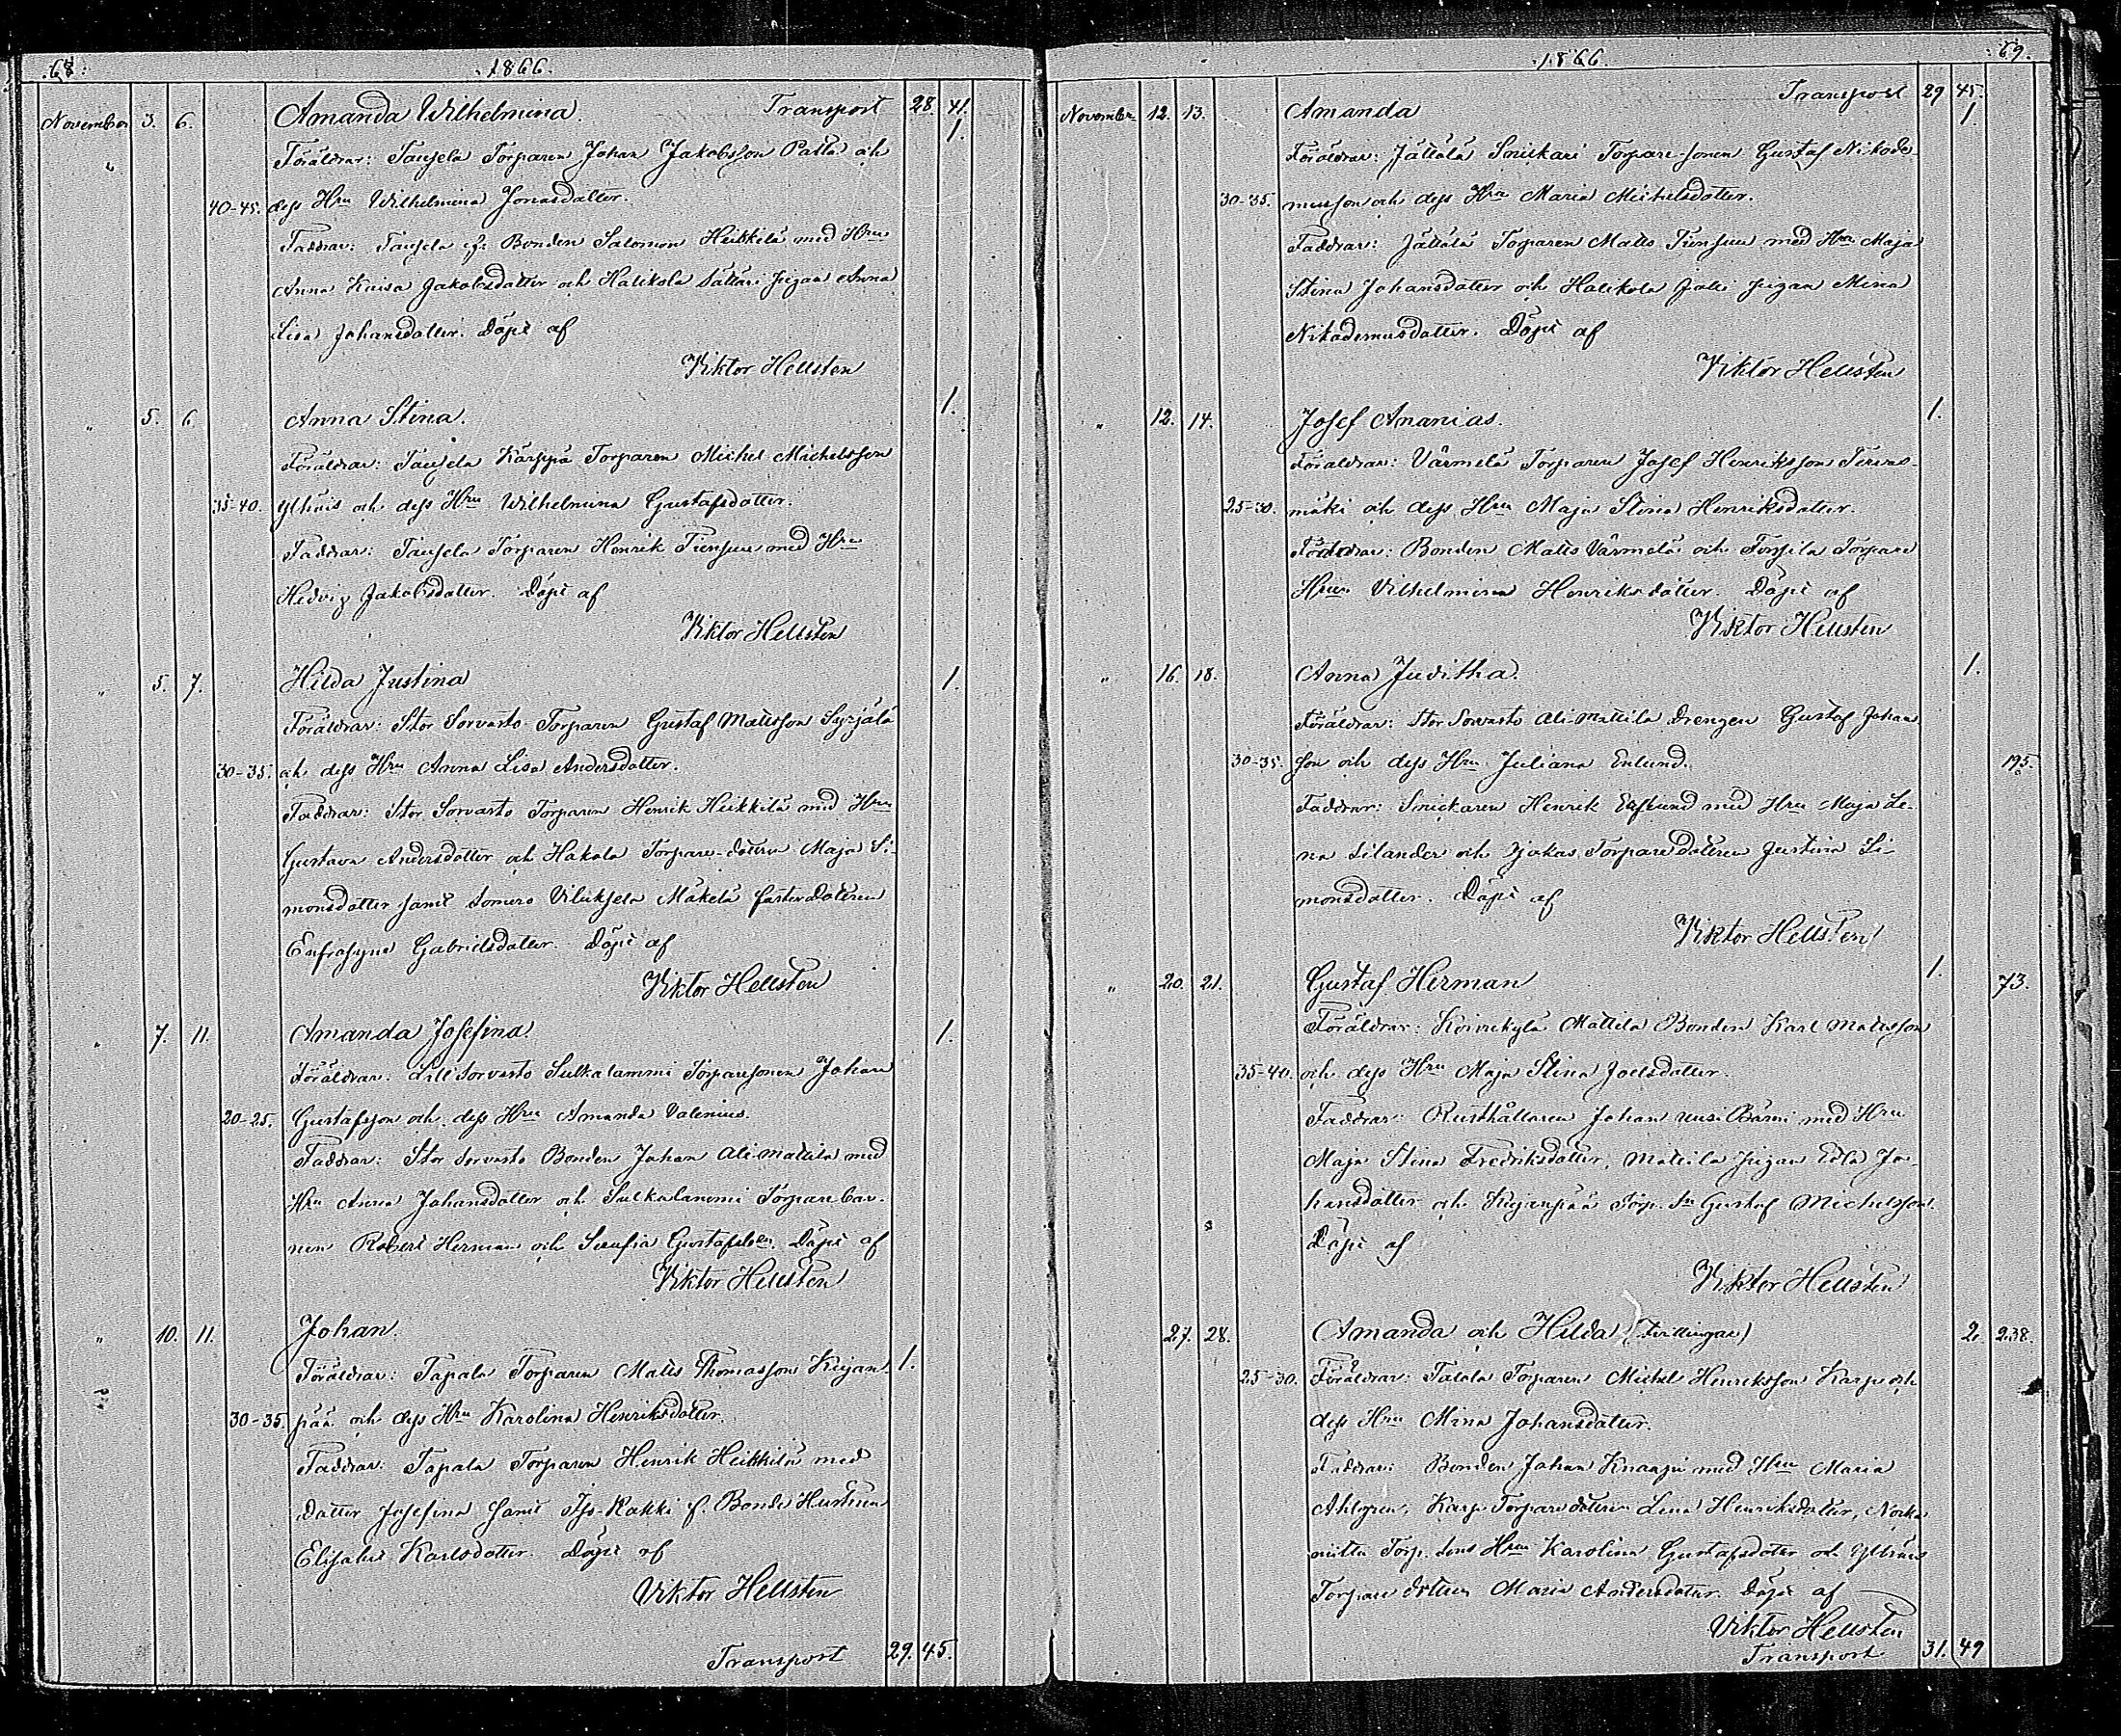 68.
1866.
Transport 28. 41.
November 3. 6. Amanda Wilhelmina. 1.
" Föräldrar: Torparen Johan Jakobsson och
40-45. dess Hru Wilhelmina Jonasdotter.
Faddrar: Bonden Salomon Heikkilä med Hru
Anna Kaisa Jakobsdotter och Halikola pigan Anna
Lisa Johansdotter. Döpt af
Viktor Hellsten
" 5. 6. Anna Stina. 1.
Föräldrar: Torparen Michel Michelsson
35-40. och dess Hru Wilhelmina Gustafsdotter.
Faddrar: Torparen Henrik med Hru
Hedvig Jakobsdotter. Döpt af
Viktor Hellsten
" 5. 7. Hilda Justina 1.
Föräldrar: Stor Sorvasto Torparen Gustaf Mattsson Syrjälä
30-35. och dess Hru Anna Lisa Andersdotter.
Faddrar: Stor Sorvasto Torparen Henrik Heikkilä med Hru
Gustava Andersdotter och Hakola Torpare-dottren Maja Si-
monsdotter samt Somero Viluksela Mäkelä
Eufrosyne Gabrielsdotter. Döpt af
Viktor Hellsten
" 7. 11. Amanda Josefina. 1.
Föräldrar: Lill Sorvasto Sulkalammi Torparesonen Johan
20-25. Gustafsson och dess Hru Amanda Valenius.
Faddrar: Stor Sorvasto Bonden Johan Ali-Mattila med
Hru Anna Johansdotter och Sulkalammi Torpare bar-
nen Robert Herman och Serafia Döpt af
Viktor Hellsten
" 10. 11. Johan.
Föräldrar: Tapala Torparen Matts Thomasson Kujan- 1.
30-35. pää och dess Hru Karolina Henriksdotter.
Faddrar: Tapala Torparen Henrik Heikkilä med
dotter Josefina samt f. Bonde Hustrun
Elisabet Karlsdotter. Döpt af
Viktor Hellsten
Transport 29. 45.
69.
1866.
Transport 29 45.
November 12. 13. Amanda 1.
Föräldrar: Jättälä Snickari Torpare-sonen Gustaf Nikode-
30-35. musson och dess Hru Maria Michelsdotter.
Faddrar: Jättälä Torparen Matts med Hru Maja
Stina Johansdotter och Halikola pigan Mina
Nikodemusdotter. Döpt af
Viktor Hellsten
" 12. 14. Josef Ananias. 1.
Föräldrar: Värmelä Torparen Josef Henriksson Tervas-
25-30. mäki och dess Hru Maja Stina Henriksdotter.
Faddrar: Bonden Matts Värmelä och Torpare
Hrun Vilhelmina Henriksdotter. Döpt af
Viktor Hellsten
" 16. 18. Anna Juditha. 1.
Föräldrar: Stor Sorvasto Ali-Mattila Drengen Gustaf Johans-
30-35. son och dess Hru Juliana Enlund. 195.
Faddrar: Snickaren Henrik med Hru Maja Le-
na Silander och Torparedottren Justina Si-
monsdotter. Döpt af
Viktor Hellsten
" 20. 21. Gustaf Herman 1. 73.
Föräldrar: Koivukylä Mattila Bonden Karl Matsson
35-40. och dess Hru Maja Stina Joelsdotter.
Faddrar: Rusthållaren Johan med Hru
Maja Stina Fredriksdotter, Mattila pigan Edla Jo-
hansdotter och Kujanpää Torp. Sn Gustaf Michelsson.
Döpt af
Viktor Hellsten
27. 28. Amanda och Hilda (Tvillingar) 2. 238.
25-30. Föräldrar: Talola Torparen Michel Henriksson Karp och
dess Hru Mina Johansdotter.
Faddrar: Bonden Johan Knaapi med Hru Maria
Ahlgren, Karp Torparedottren Lena Henriksdotter,
Torp. sons Hru Karolina Gustafsdotter och
Torpare dottren Maria Andersdotter. Döpt af
Viktor Hellsten
Transport 31. 49